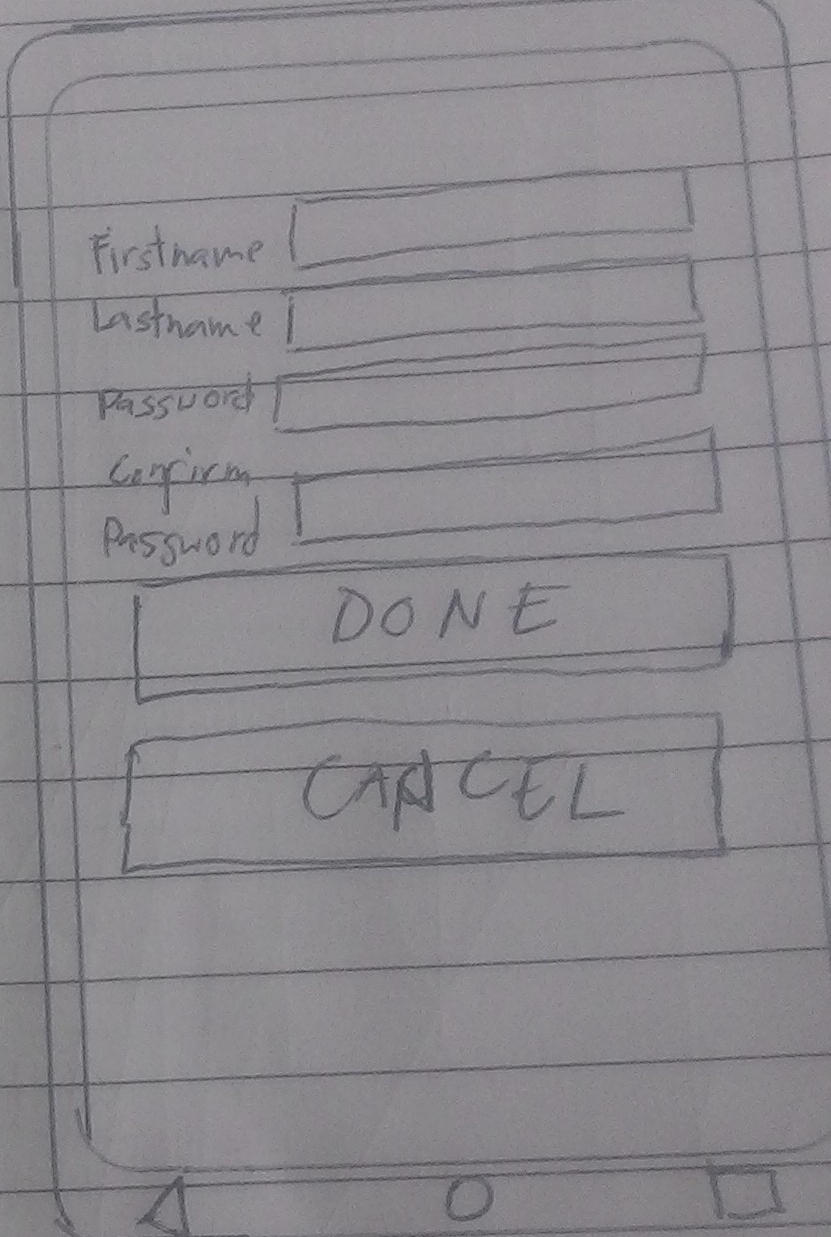 Firstname
Lastname
Password
Confirm
Password
DONE
CANCEL